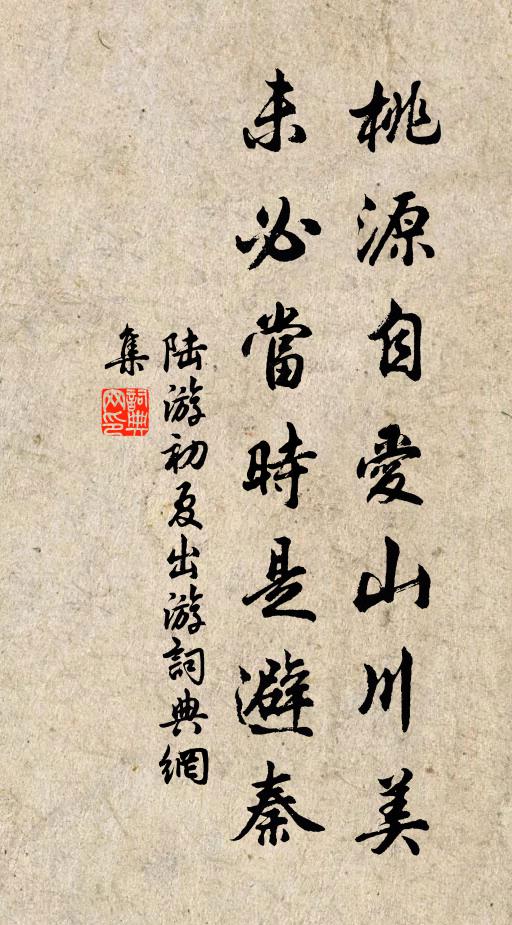 桃源自愛山川美
未必當時是避秦
陆游初夏出游詞典網
集
詞典網印